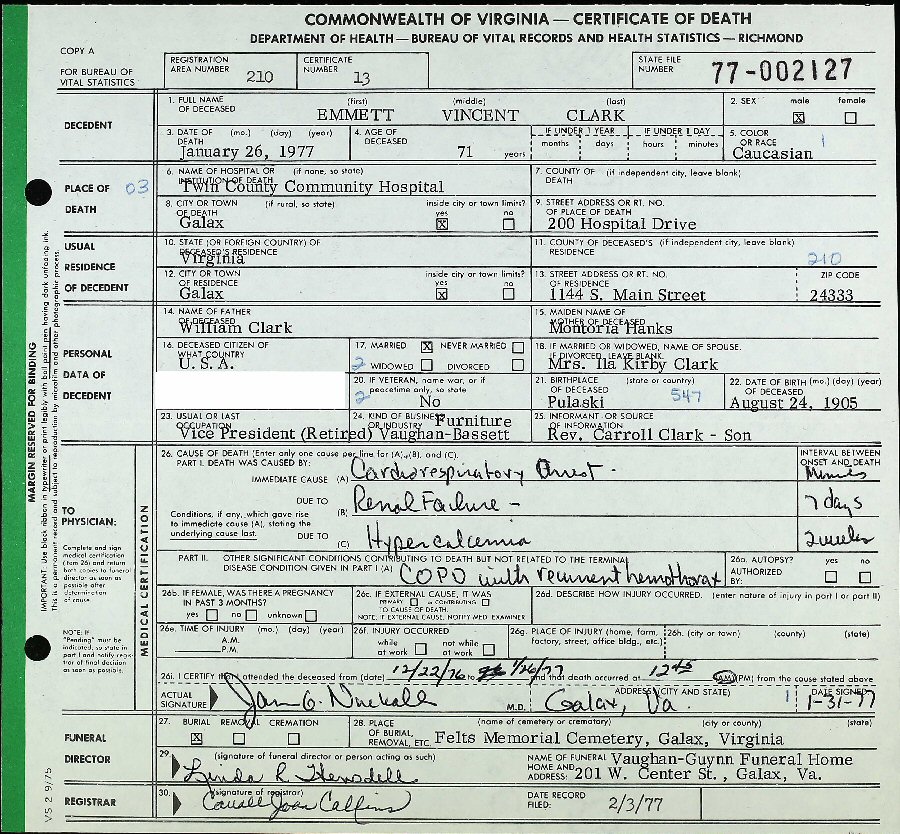 COMMONWEALTH OF VIRGINIA — CERTIFICATE OF DEATH
DEPARTMENT OF HEALTH — BUREAU OF VITAL RECORDS AND HEALTH STATISTICS — RICHMOND
COPY A
FOR BUREAU OF VITAL STATISTICS
REGISTRATION AREA NUMBER 210
CERTIFICATE NUMBER 13
STATE FILE NUMBER 77-002127
DECEDENT
1. FULL NAME OF DECEASED (first) (middle) (last)
EMMETT VINCENT CLARK
2. SEX male female
X
3. DATE OF DEATH (mo.) (day) (year)
January 26, 1977
4. AGE OF DECEASED
71 years
IF UNDER 1 YEAR months days
IF UNDER 1 DAY hours minutes
5. COLOR OR RACE 1
Caucasian
PLACE OF DEATH 03
6. NAME OF HOSPITAL OR INSTITUTION OF DEATH (if none, so state)
Twin County Community Hospital
7. COUNTY OF DEATH (if independent city, leave blank)
8. CITY OR TOWN OF DEATH (if rural, so state) inside city or town limits? yes no
Galax X
9. STREET ADDRESS OR RT. NO. OF PLACE OF DEATH
200 Hospital Drive
USUAL RESIDENCE OF DECEDENT
10. STATE (OR FOREIGN COUNTRY) OF DECEASED'S RESIDENCE
Virginia
11. COUNTY OF DECEASED'S RESIDENCE (if independent city, leave blank)
210
12. CITY OR TOWN OF RESIDENCE inside city or town limits? yes no
Galax X
13. STREET ADDRESS OR RT. NO. OF RESIDENCE ZIP CODE
1144 S. Main Street 24333
PERSONAL DATA OF DECEDENT
14. NAME OF FATHER OF DECEASED
William Clark
15. MAIDEN NAME OF MOTHER OF DECEASED
Montoria Hanks
16. DECEASED CITIZEN OF WHAT COUNTRY
U. S. A.
17. MARRIED X NEVER MARRIED
2 WIDOWED DIVORCED
18. IF MARRIED OR WIDOWED, NAME OF SPOUSE. IF DIVORCED, LEAVE BLANK.
Mrs. Ila Kirby Clark
20. IF VETERAN, name war, or if peacetime only, so state
2 No
21. BIRTHPLACE OF DECEASED (state or country)
Pulaski 547
22. DATE OF BIRTH (mo.) (day) (year) OF DECEASED
August 24, 1905
23. USUAL OR LAST OCCUPATION
Vice President (Retired)
24. KIND OF BUSINESS OR INDUSTRY
Furniture
Vaughan-Bassett
25. INFORMANT OR SOURCE OF INFORMATION
Rev. Carroll Clark - Son
MARGIN RESERVED FOR BINDING
IMPORTANT: Use black ribbon in typewriter or print legibly with ball point pen having dark unfading ink.
This is a permanent record and subject to reproduction by microfilm and other photographic process.
VS 2 9/75
TO PHYSICIAN:
Complete and sign medical certification (item 26) and return both copies to funeral director as soon as possible after determination of cause.
NOTE: If "Pending" must be indicated, so state in part I and notify registrar of final decision as soon as possible.
MEDICAL CERTIFICATION
26. CAUSE OF DEATH (Enter only one cause per line for (A), (B), and (C).
PART I. DEATH WAS CAUSED BY:
INTERVAL BETWEEN ONSET AND DEATH
IMMEDIATE CAUSE (A) Cardiorespiratory Arrest - Minutes
DUE TO (B) Renal Failure - 7 days
Conditions, if any, which gave rise to immediate cause (A), stating the underlying cause last.
DUE TO (C) Hypercalcemia 2 weeks
PART II. OTHER SIGNIFICANT CONDITIONS CONTRIBUTING TO DEATH BUT NOT RELATED TO THE TERMINAL DISEASE CONDITION GIVEN IN PART I (A)
COPD with recurrent hemothorax
26a. AUTOPSY? yes no
AUTHORIZED BY:
26b. IF FEMALE, WAS THERE A PREGNANCY IN PAST 3 MONTHS?
yes no unknown
26c. IF EXTERNAL CAUSE, IT WAS
PRIMARY or CONTRIBUTING
TO CAUSE OF DEATH.
NOTE: IF EXTERNAL CAUSE, NOTIFY MED. EXAMINER
26d. DESCRIBE HOW INJURY OCCURRED. (enter nature of injury in part I or part II)
26e. TIME OF INJURY (mo.) (day) (year)
A.M.
P.M.
26f. INJURY OCCURRED
while at work not while at work
26g. PLACE OF INJURY (home, farm, factory, street, office bldg., etc.)
26h. (city or town) (county) (state)
26i. I CERTIFY that I attended the deceased from (date) 12/22/76 to 1/26/77 and that death occurred at 12 45 (AM) (PM) from the cause stated above
ACTUAL SIGNATURE M.D.
ADDRESS (CITY AND STATE)
Galax, Va. 1
DATE SIGNED
1-31-77
FUNERAL DIRECTOR
27. BURIAL REMOVAL CREMATION
X
28. PLACE OF BURIAL, REMOVAL, ETC. (name of cemetery or crematory) (city or county) (state)
Felts Memorial Cemetery, Galax, Virginia
29. (signature of funeral director or person acting as such)
Linda R.
NAME OF FUNERAL HOME AND ADDRESS:
Vaughan-Guynn Funeral Home
201 W. Center St., Galax, Va.
REGISTRAR
30. (signature of registrar)
DATE RECORD FILED: 2/3/77